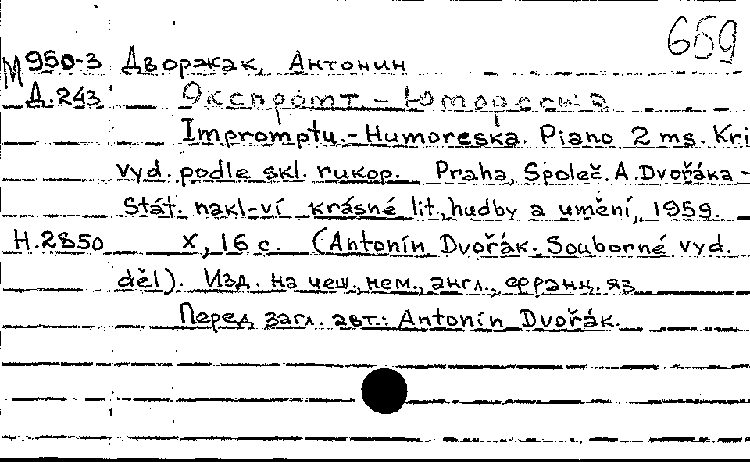 659
М 950-3 Дворжак, Антонин
Д.243 Экспромт - Юмореска
Impromptu.-Humoreska. Piano 2 ms. Kri
vyd. podle skl. rukop. Praha, Společ. A.Dvořáka -
Stát. nakl-ví krásné lit., hudby a umění, 1959.
Н.2850 X, 16 с. (Antonín Dvořák. Souborné vyd.
děl). Изд. на чеш., нем., англ., франц. яз
Перед загл. авт.: Antonín Dvořák.